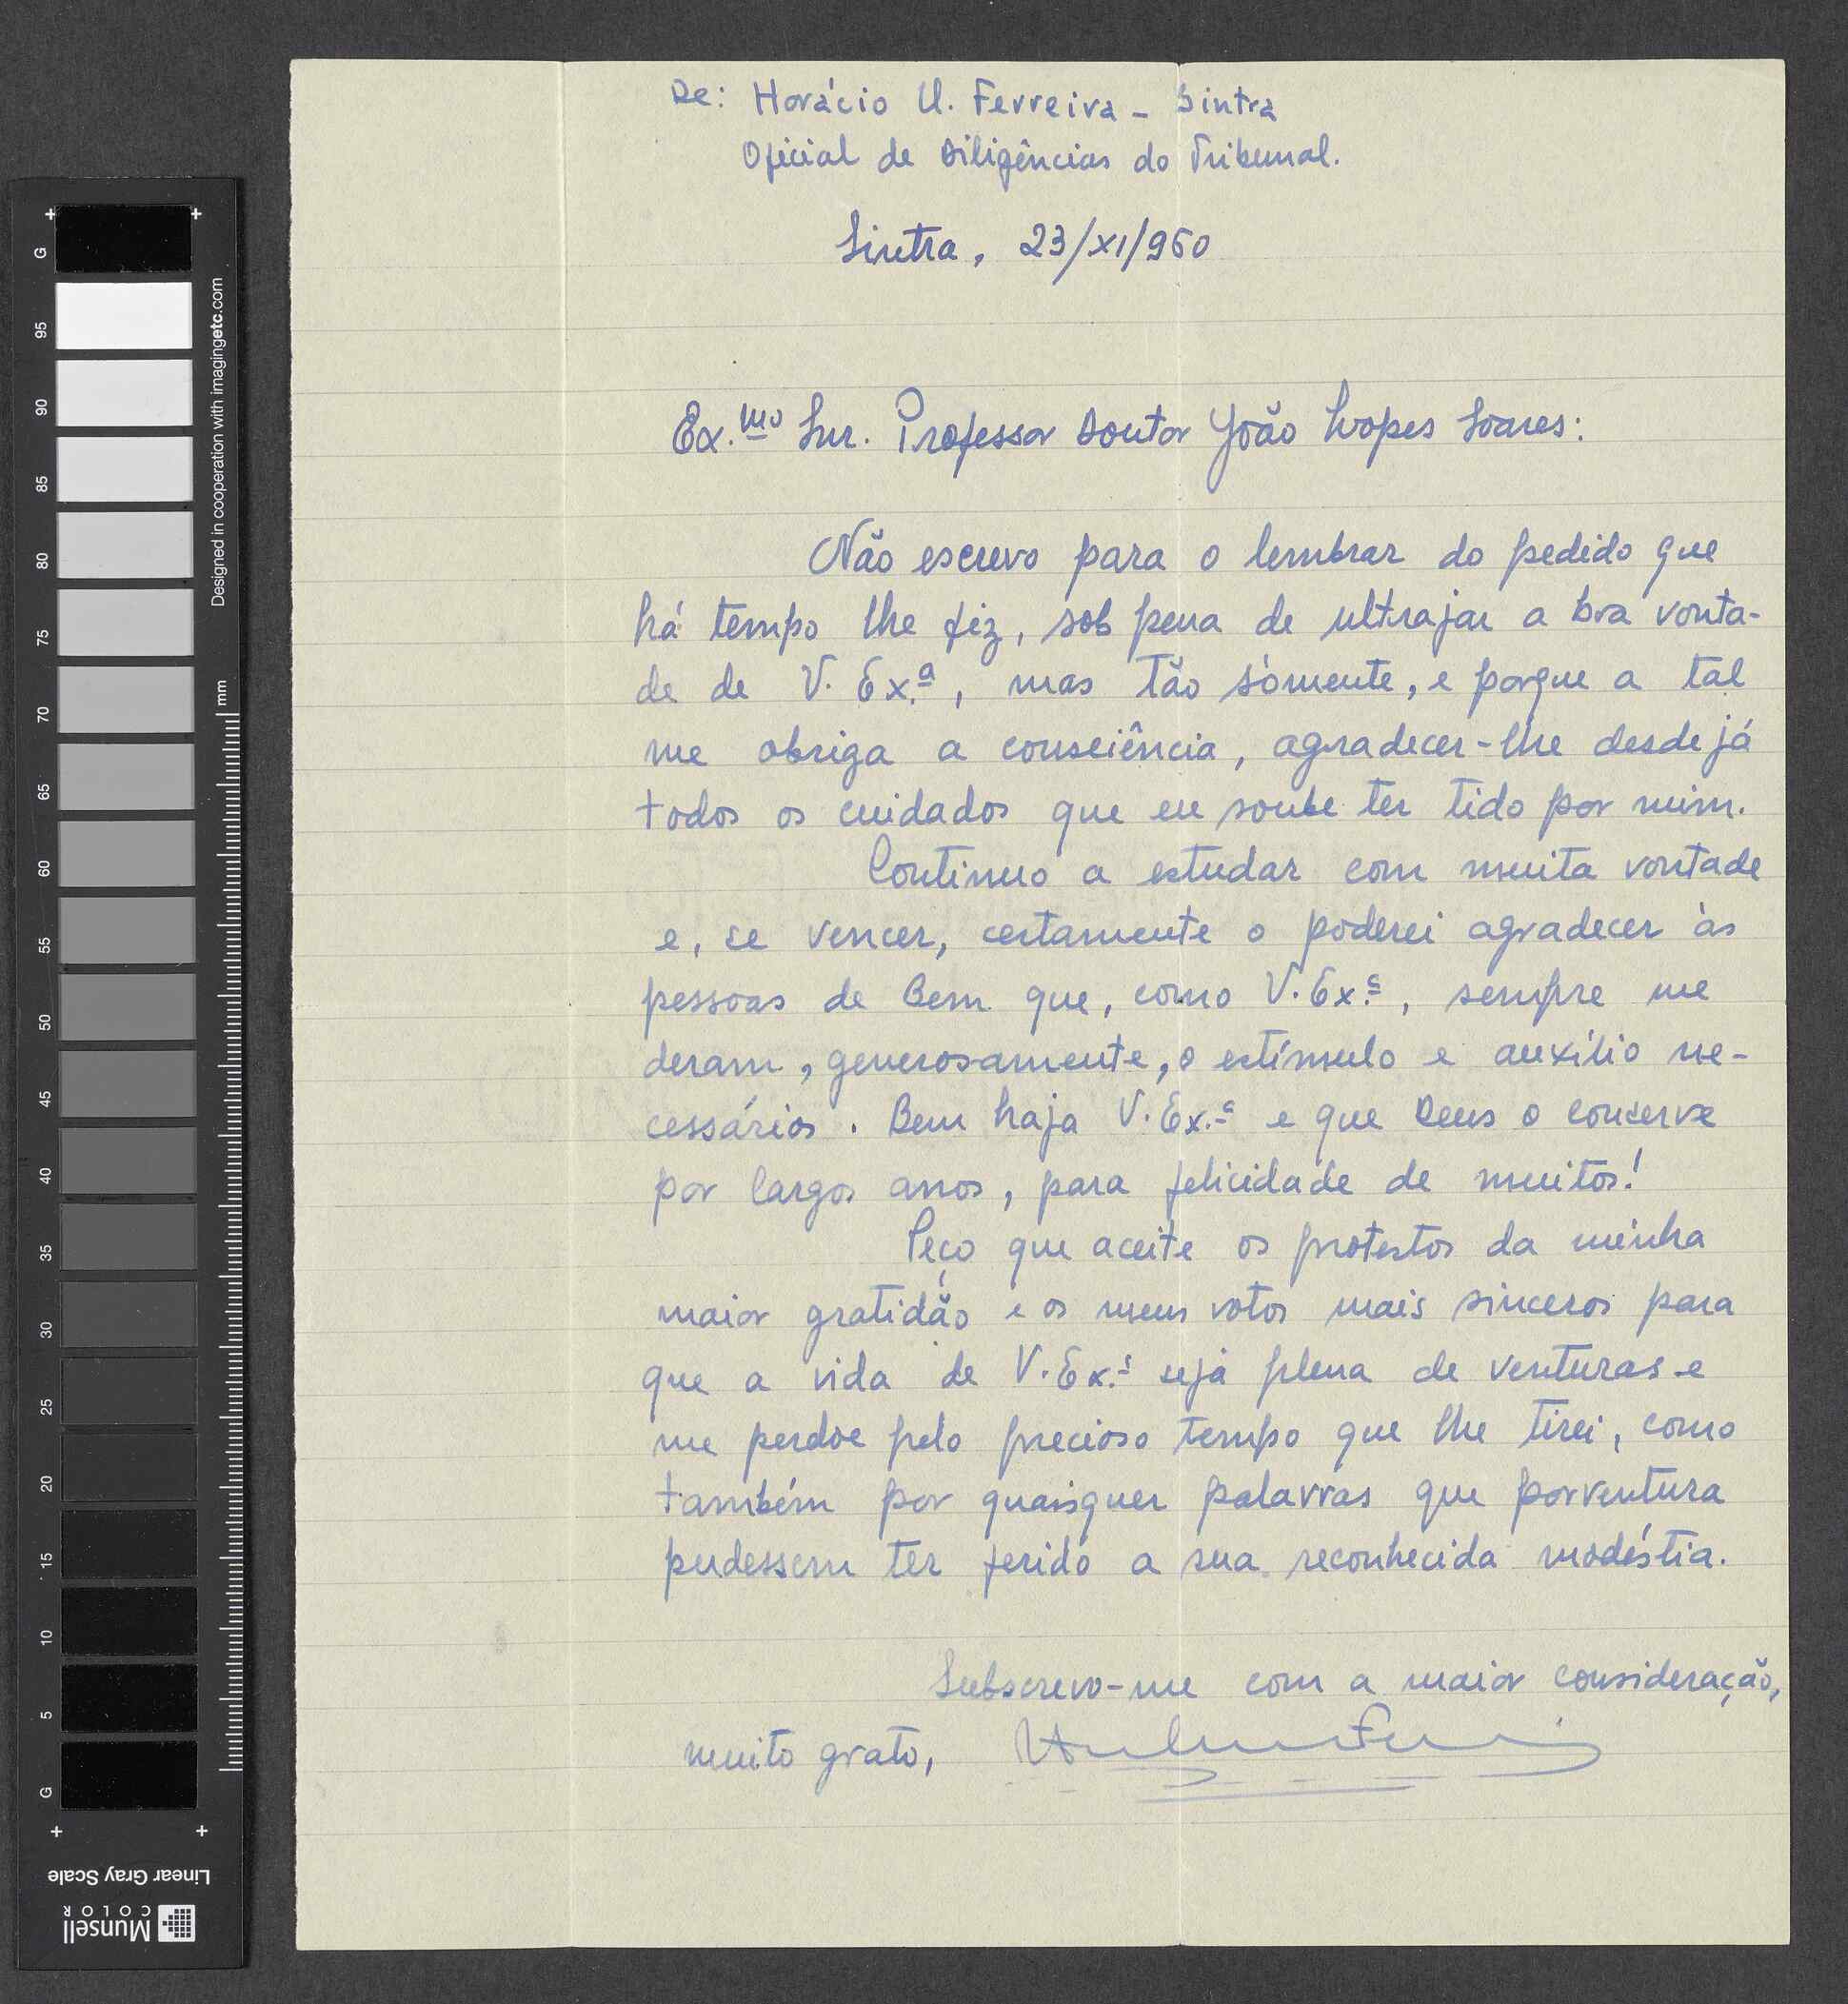 De: Horácio U. Ferreira - Sintra
Oficial de Diligências do Tribunal.
Sintra, 23/XI/960
Ex.mo Snr. Professor Doutor João Lopes Soares:
Não escrevo para o lembrar do pedido que
há tempo lhe fiz, sob pena de ultrajar a boa vonta-
de de V. Ex.ª, mas tão sòmente, e porque a tal
me obriga a consciência, agradecer-lhe desde já
todos os cuidados que eu soube ter tido por mim.
Continuo a estudar com muita vontade
e, se vencer, certamente o poderei agradecer às
pessoas de Bem que, como V. Ex.ª, sempre me
deram, generosamente, o estímulo e auxílio ne-
cessários. Bem haja V. Ex.ª e que Deus o conserve
por largos anos, para felicidade de muitos!
Peço que aceite os protestos da minha
maior gratidão e os meus votos mais sinceros para
que a vida de V. Ex.ª seja plena de venturas e
me perdoe pelo precioso tempo que lhe tirei, como
também por quaisquer palavras que porventura
pudessem ter ferido a sua reconhecida modéstia.
Subscrevo-me com a maior consideração,
muito grato,
G
95
90
85
80
75
70
65
60
55
50
45
40
35
30
25
20
15
10
5
G
mm
Designed in cooperation with imagingetc.com
Linear Gray Scale
Munsell
COLOR